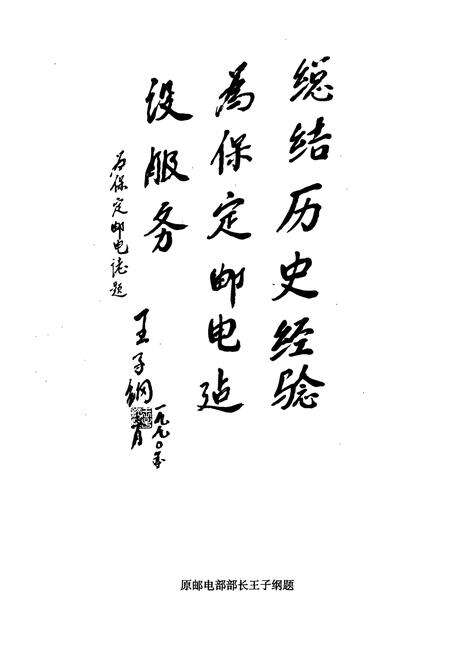 總结历史经验
為保定邮电建
设服务
为保定邮电志题
王子纲
一九九〇年
月
原邮电部部长王子纲题